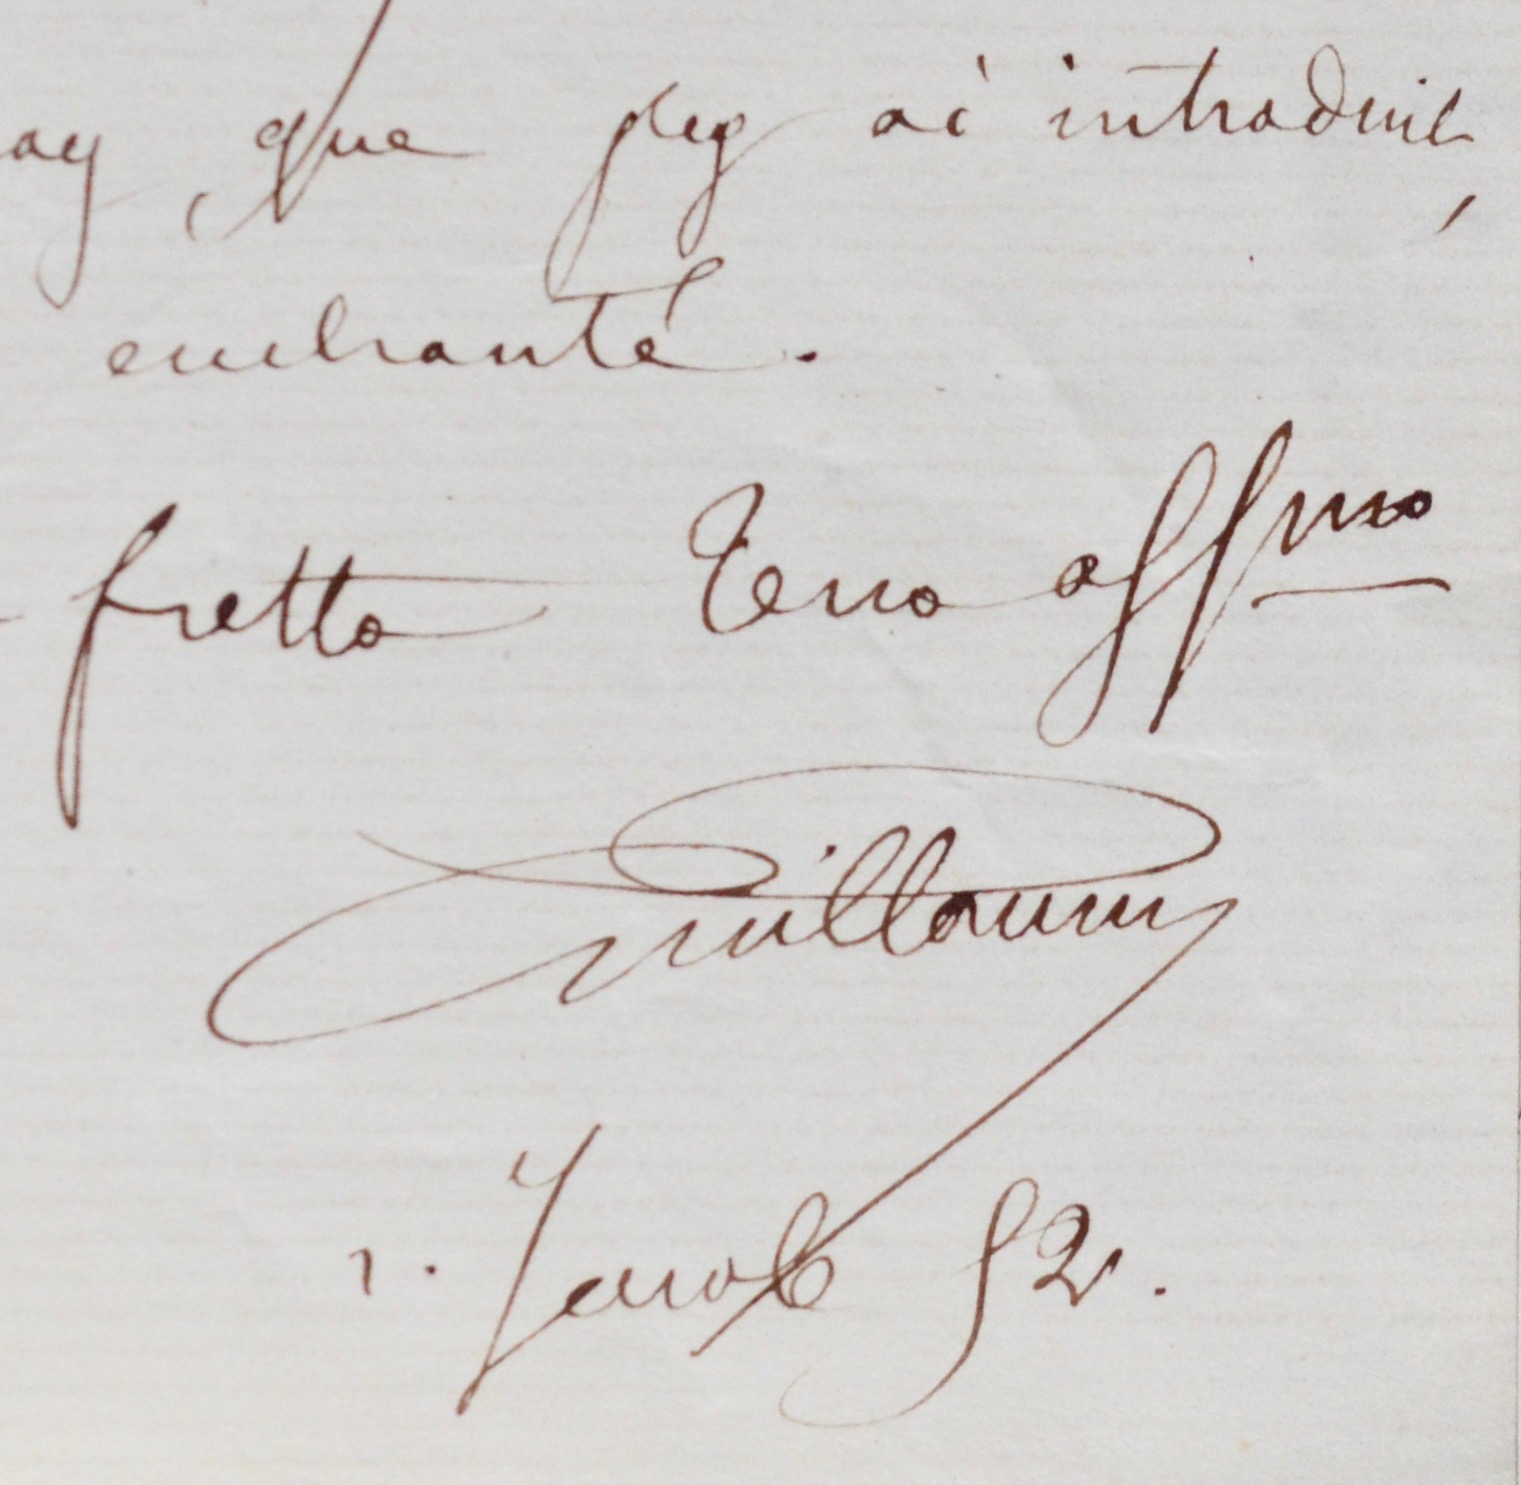 ay, que j'ey ai introduit,
enchanté.
fretta Tuo affmo
Guillaume
r. Jacob 52.